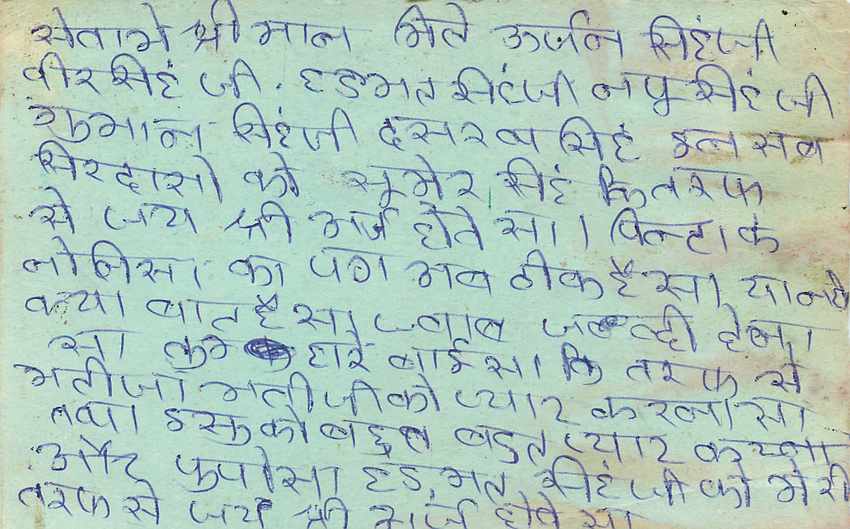 सेवामे श्री मान भिते ऊर्जन सिहंजी
वीरसिहं जी. हडमत सिहंजी नपु सिहं जी
गुमान सिहंजी दसरथ सिहं इन सब
सिरदारो को सुमेर सिहं कि तरफ
से जय श्री अर्ज होते सा।
का पग अब ठीक है सा
क्या बात है सा जवाब जल्दी देना
सा बाईसा कि तरफ से
भतीजा भतीजी को प्यार करना सा
तथा को बहुत बहुत प्यार करना
और फुपोसा हडमत सिहं जी को मेरी
तरफ से जय श्री अर्ज होवे सा